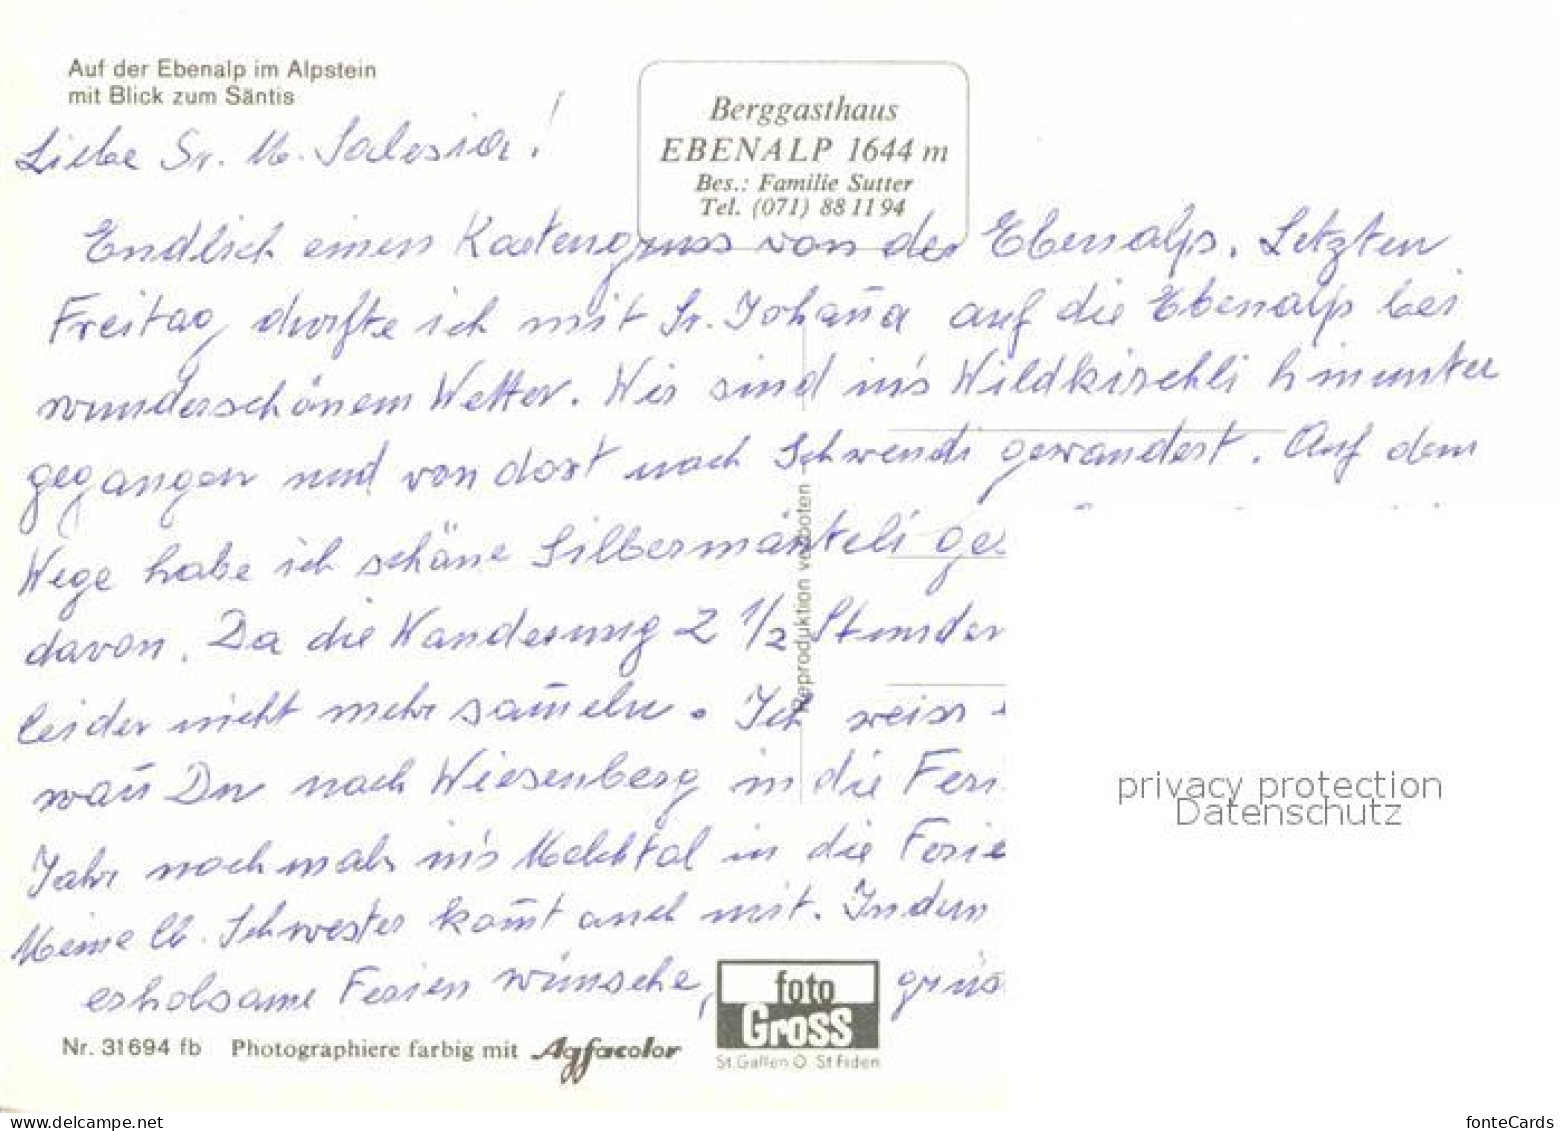 Auf der Ebenalp im Alpstein
mit Blick zum Säntis
Berggasthaus
EBENALP 1644 m
Bes.: Familie Sutter
Tel. (071) 88 11 94
Liebe Sr. M. Salesia!
Endlich einen Kartengruss von der Ebenalp. Letzten
Freitag durfte ich mit Sr. Johan̄a auf die Ebenalp bei
wunderschönem Wetter. Wir sind in's Wildkirchli hinunter
gegangen und von dort nach Schwendi gewandert. Auf dem
Wege habe ich schöne Silbermänteli ges
davon. Da die Wanderung 2 1/2 Stunden
leider nicht mehr sam̄eln. Ich weiss
wan̄ Du nach Wiesenberg in die Feri
Jahr nochmals in's Melchtal in die Ferie
Meine lb. Schwester kom̄t auch mit. Indem
erholsame Ferien wünsche, grüs
Reproduktion verboten
privacy protection
Datenschutz
Nr. 31694 fb Photographiere farbig mit Agfacolor
foto
Gross
St.Gallen O St Fiden
www.delcampe.net
fonteCards